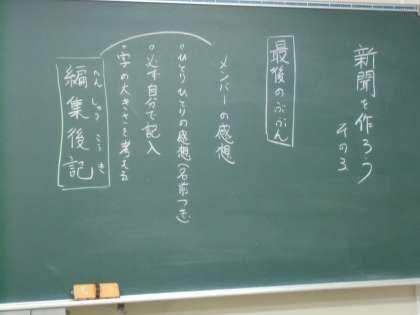 新聞を作ろう その3
最後のぶぶん
メンバーの感想
・ひとりひとりの感想(名前つき)
・必ず自分で記入
・字の大きさを考える
へんしゅうこうき
編集後記